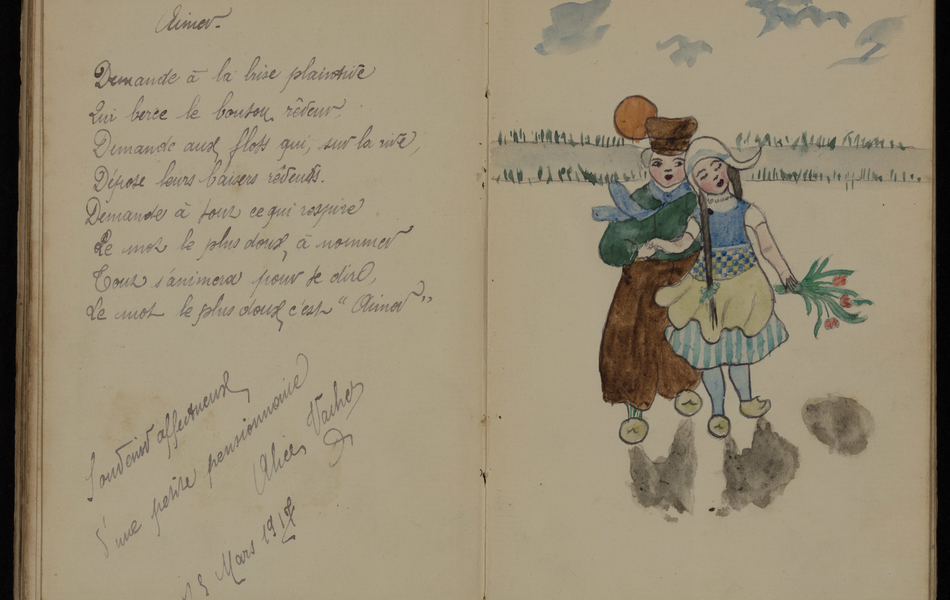 Aimer.
Demande à la brise plaintive
Qui berce le bouton rêveur.
Demande aux flots qui, sur la rive,
Dépose leurs baisers rêveurs.
Demande à tout ce qui respire
Le mot le plus doux, à nommer
Tout s'animera pour te dire,
Le mot le plus doux, c'est "Aimer"
Souvenir affectueux,
d'une petite pensionnaire
Alice Vachey
Mars 1917